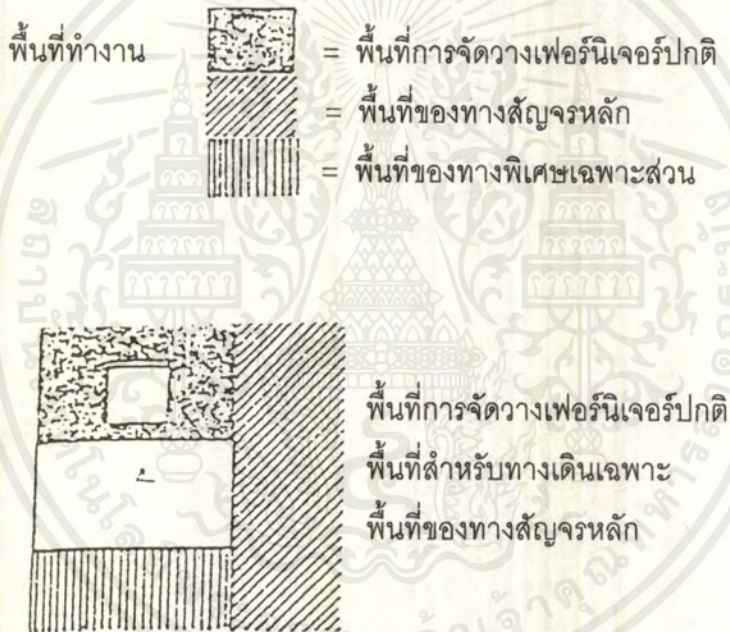 พื้นที่ทำงาน
= พื้นที่การจัดวางเฟอร์นิเจอร์ปกติ
= พื้นที่ของทางสัญจรหลัก
= พื้นที่ของทางพิเศษเฉพาะส่วน
พื้นที่การจัดวางเฟอร์นิเจอร์ปกติ
พื้นที่สำหรับทางเดินเฉพาะ
พื้นที่ของทางสัญจรหลัก